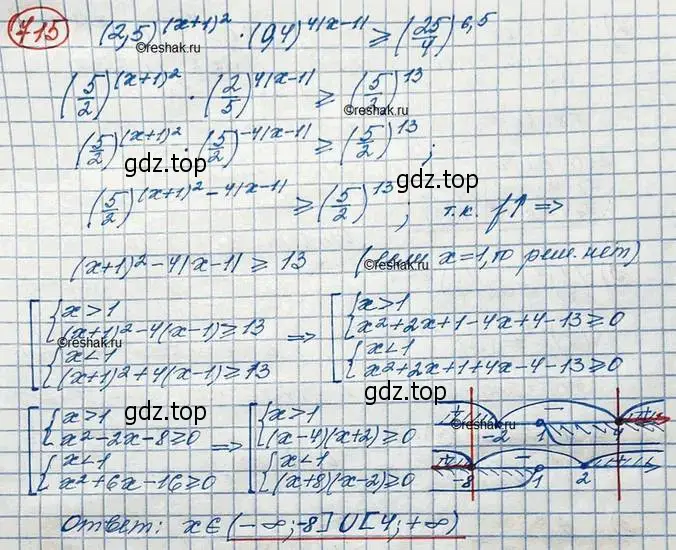 715 (2,5)^(x+1)² · (0,4)^4|x-1| ≥ (25/4)^6,5
©reshak.ru
©reshak.ru
(5/2)^(x+1)² · (2/5)^4|x-1| ≥ (5/2)^13
©reshak.ru
(5/2)^(x+1)² · (5/2)^-4|x-1| ≥ (5/2)^13;
gdz.top
gdz.top
(5/2)^(x+1)²-4|x-1| ≥ (5/2)^13; т.к. f↑ ⇒
(x+1)²-4|x-1| ≥ 13 (если x=1, то реш. нет)
©reshak.ru
[ { x>1
(x+1)²-4(x-1)≥13
{ x<1
(x+1)²+4(x-1)≥13
©reshak.ru
⇒ [ { x>1
x²+2x+1-4x+4-13≥0
{ x<1
x²+2x+1+4x-4-13≥0
gdz.top
gdz.top
[ { x>1
x²-2x-8≥0
{ x<1
x²+6x-16≥0
⇒ [ { x>1
(x-4)(x+2)≥0
{ x<1
(x+8)(x-2)≥0
©reshak.ru
+ - +
-2 1 4
-8 1 2
Ответ: x∈(-∞;-8]∪[4;+∞)
©reshak.ru